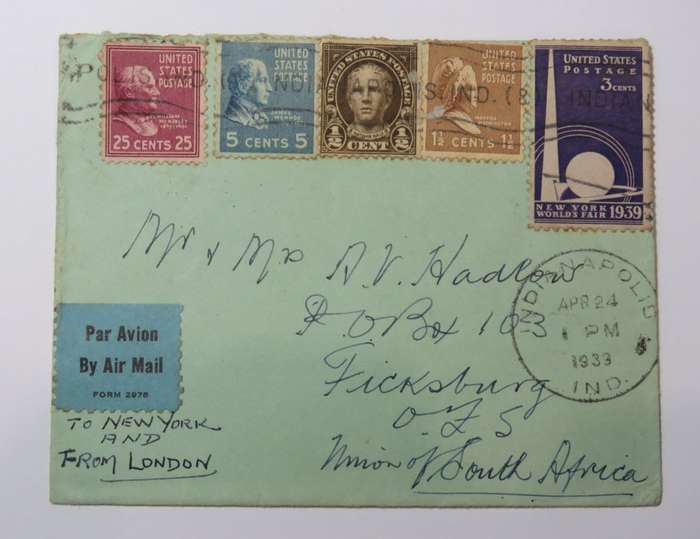 UNITED
STATES
POSTAGE
WILLIAM
McKINLEY
25 CENTS 25
UNITED
STATES
POSTAGE
JAMES
MONROE
5 CENTS 5
UNITED STATES POSTAGE
1/2 CENT 1/2
UNITED
STATES
POSTAGE
MARTHA
WASHINGTON
1½ CENTS 1½
UNITED STATES
POSTAGE
3 CENTS
NEW YORK
WORLD'S FAIR 1939
IND. (&) INDIAN
Mr & Mrs A.V. Hadlow
P.O Box 103
Ficksburg
O.F.S
Union of South Africa
INDIANAPOLIS
APR 24
1 PM
1939
IND.
Par Avion
By Air Mail
FORM 2978
TO NEW YORK
AND
FROM LONDON